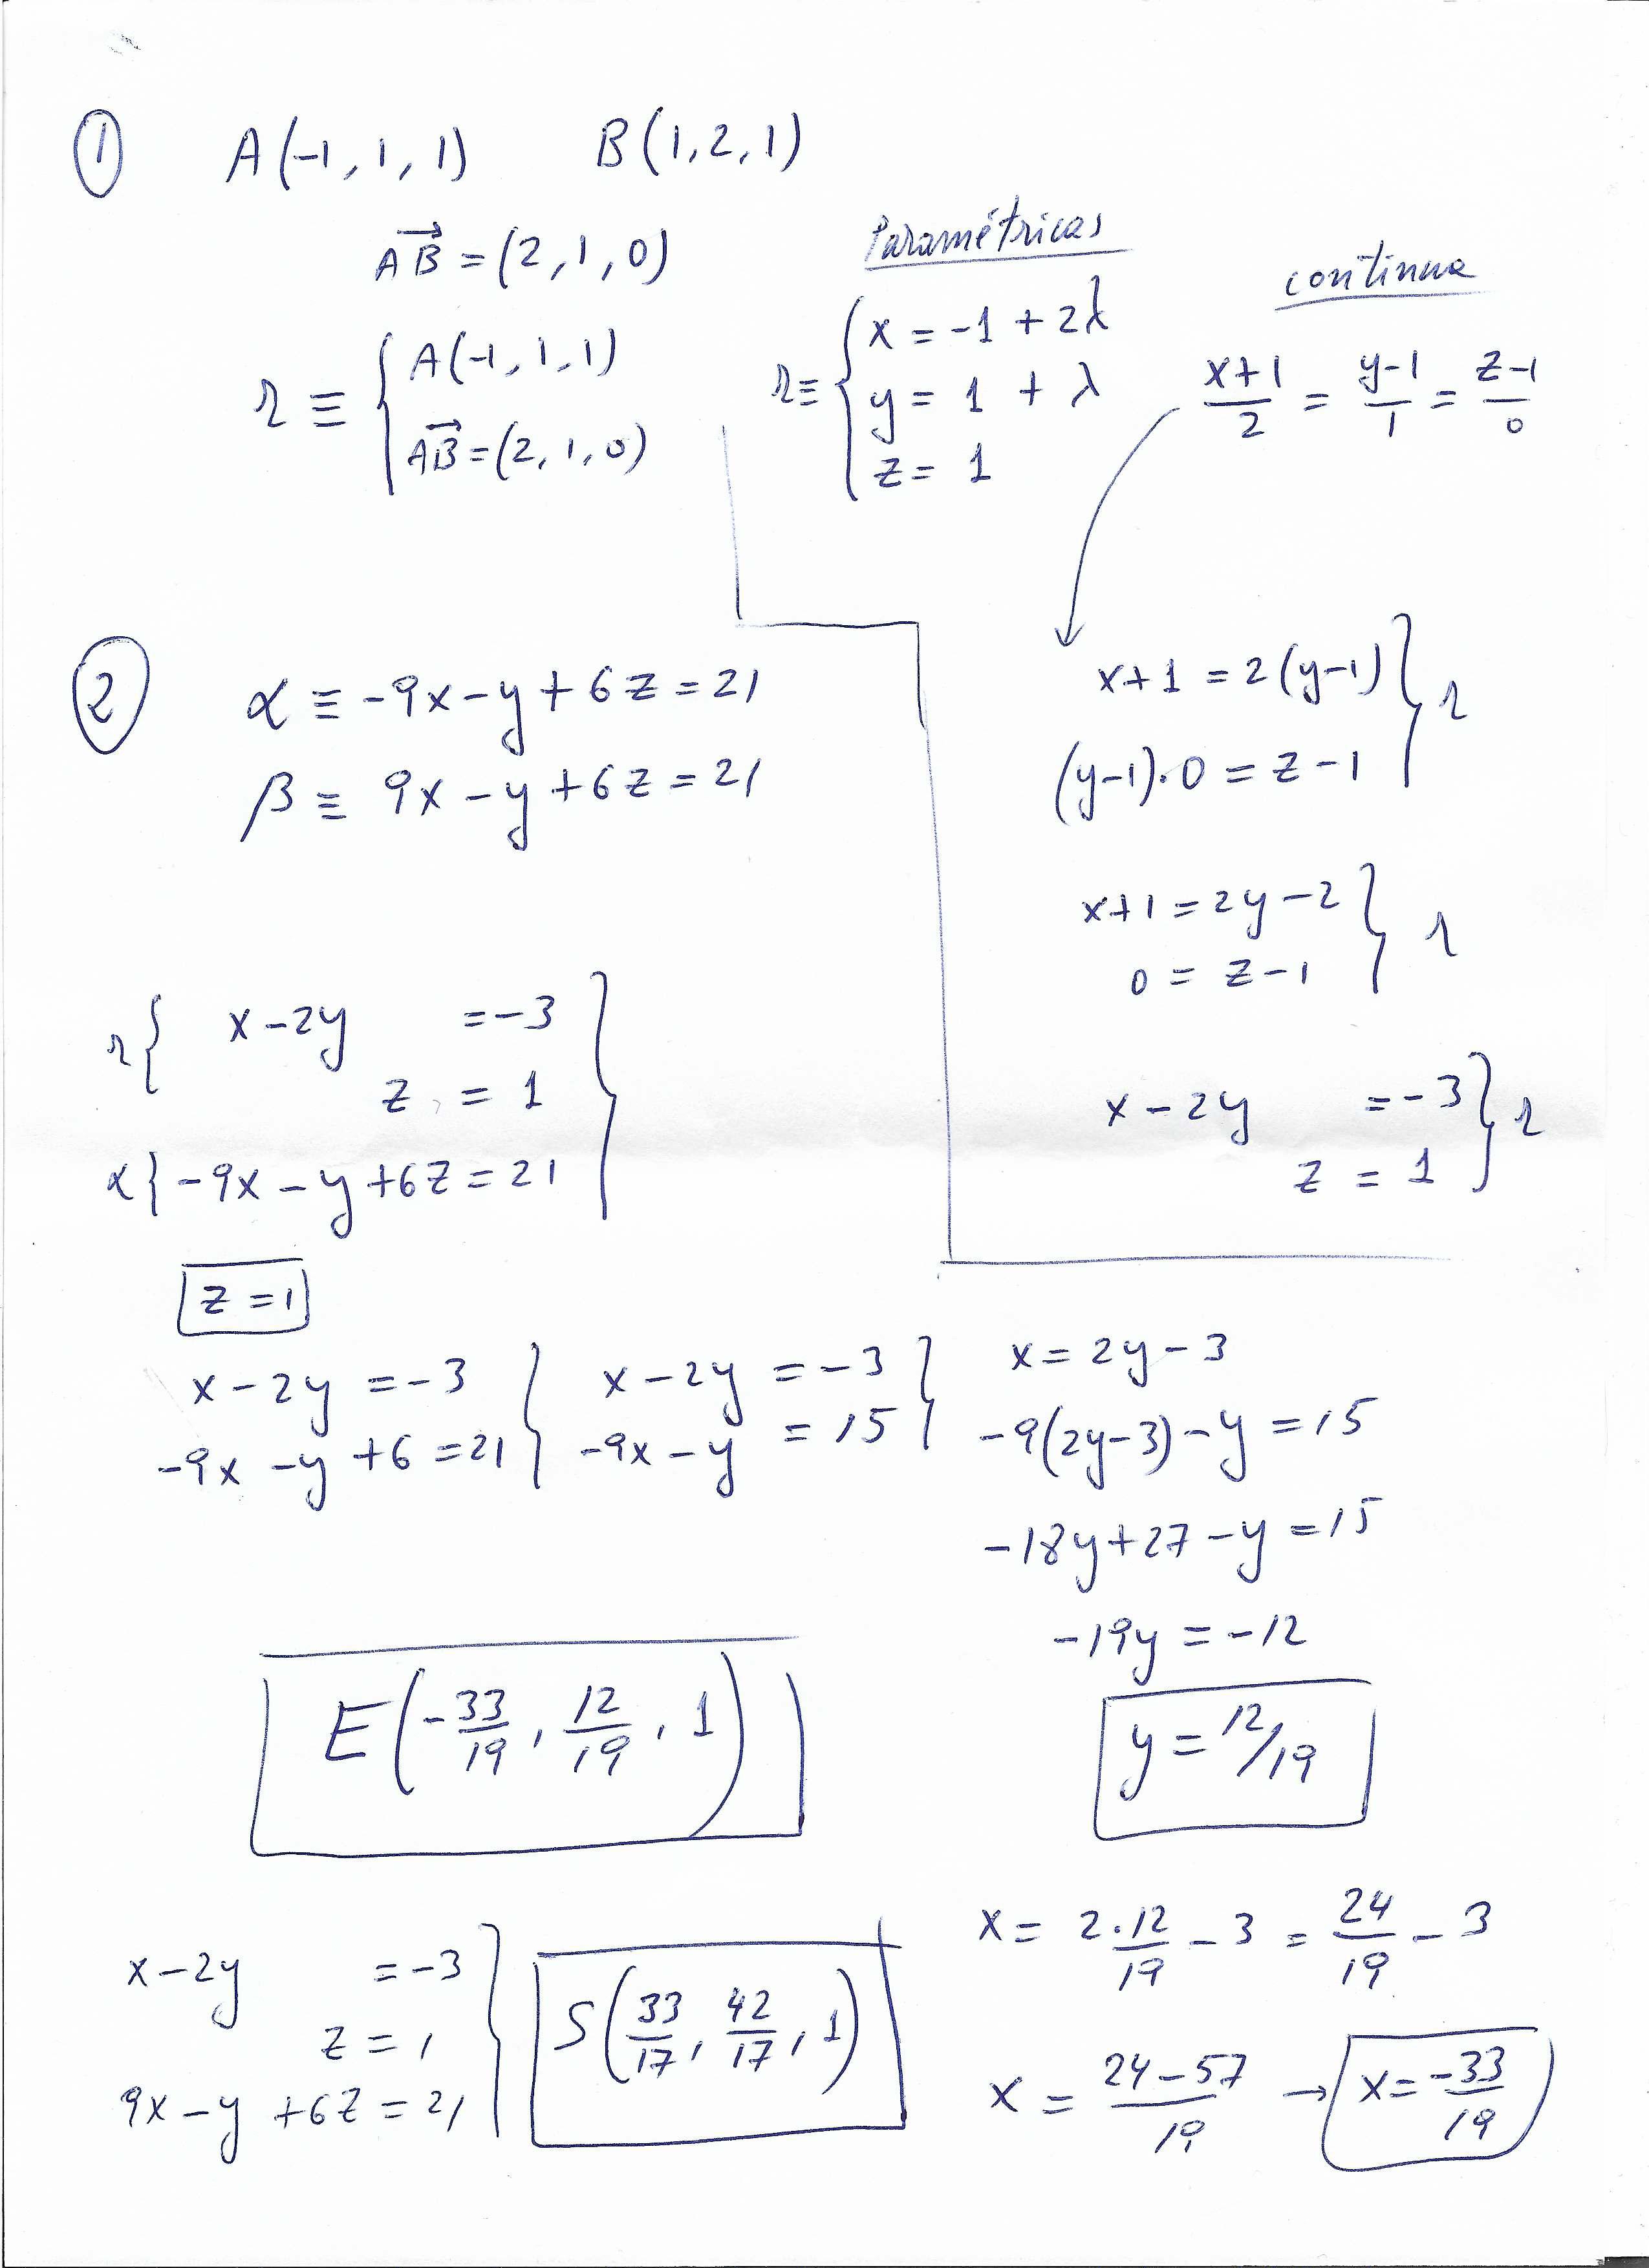 ① A(-1, 1, 1) B(1, 2, 1)
AB = (2, 1, 0)
r ≡ { A(-1, 1, 1)
AB = (2, 1, 0)
Paramétricas
r ≡ { x = -1 + 2λ
y = 1 + λ
z = 1
continua
x+1/2 = y-1/1 = z-1/0
x+1 = 2(y-1) } r
(y-1)·0 = z-1
x+1 = 2y-2 } r
0 = z-1
x-2y = -3 } r
z = 1
② α ≡ -9x-y+6z = 21
β ≡ 9x-y+6z = 21
r { x-2y = -3 }
z = 1
α { -9x-y+6z = 21
z = 1
x-2y = -3 } x-2y = -3 } x = 2y-3
-9x-y+6 = 21 -9x-y = 15 -9(2y-3)-y = 15
-18y+27-y = 15
-19y = -12
y = 12/19
E(-33/19, 12/19, 1)
x = 2·12/19 - 3 = 24/19 - 3
x = 24-57/19 → x = -33/19
x-2y = -3 }
z = 1
9x-y+6z = 21
S(33/17, 42/17, 1)